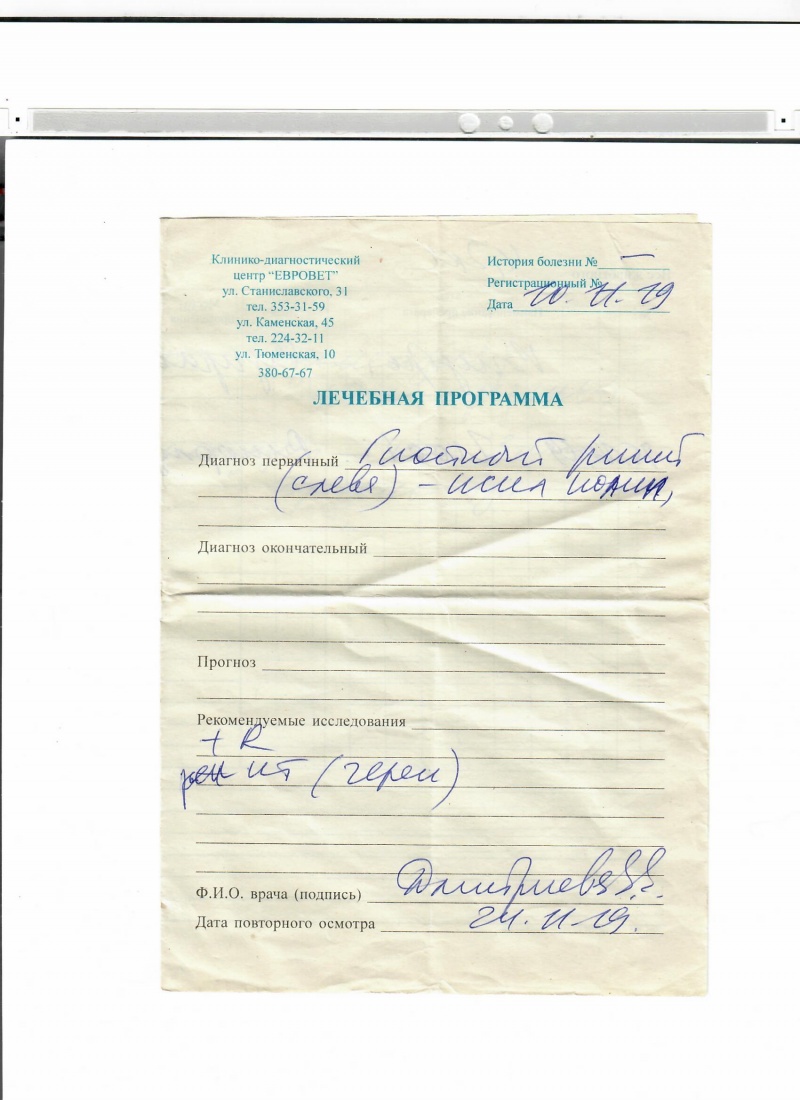 Клинико-диагностический
центр "ЕВРОВЕТ"
ул. Станиславского, 31
тел. 353-31-59
ул. Каменская, 45
тел. 224-32-11
ул. Тюменская, 10
380-67-67
История болезни № –
Регистрационный №
Дата 10.11.19
ЛЕЧЕБНАЯ ПРОГРАММА
Диагноз первичный Гнойный ринит
(слева) –
Диагноз окончательный
Прогноз
Рекомендуемые исследования
+ R
КТ (череп)
Ф.И.О. врача (подпись) Дмитриева
Дата повторного осмотра 24.11.19.